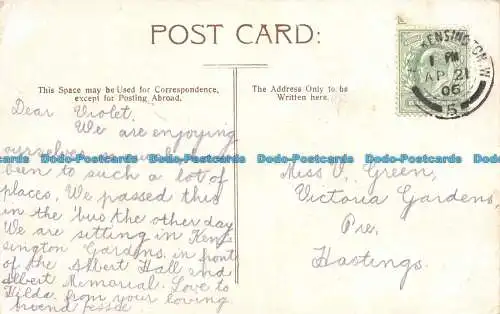 POST CARD:
KENSINGTON. W.
1 PM
AP 21
06
5
This Space may be Used for Correspondence,
except for Posting Abroad.
The Address Only to be
Written here.
Dear Violet.
We are enjoying
ourselves
been to such a lot of
places. We passed this
in the 'bus the other day
We are sitting in Kens
ington Gardens, in front
of the Albert Hall and
Albert Memorial. Love to
Hilda from your loving
Jessie
Miss V. Green,
Victoria Gardens,
Ore,
Hastings.
Dodo-Postcards Dodo-Postcards Dodo-Postcards Dodo-Postcards